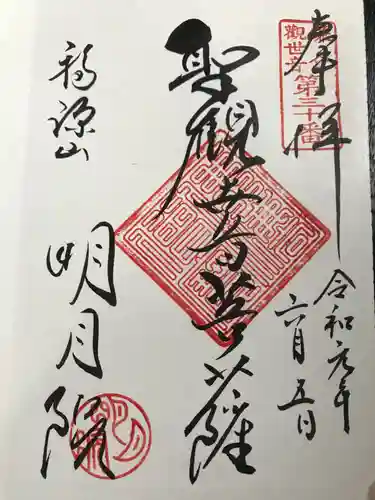 奉拝
観世音
第三十番
令和元年
六月五日
聖観世音菩薩
福源山
明月院